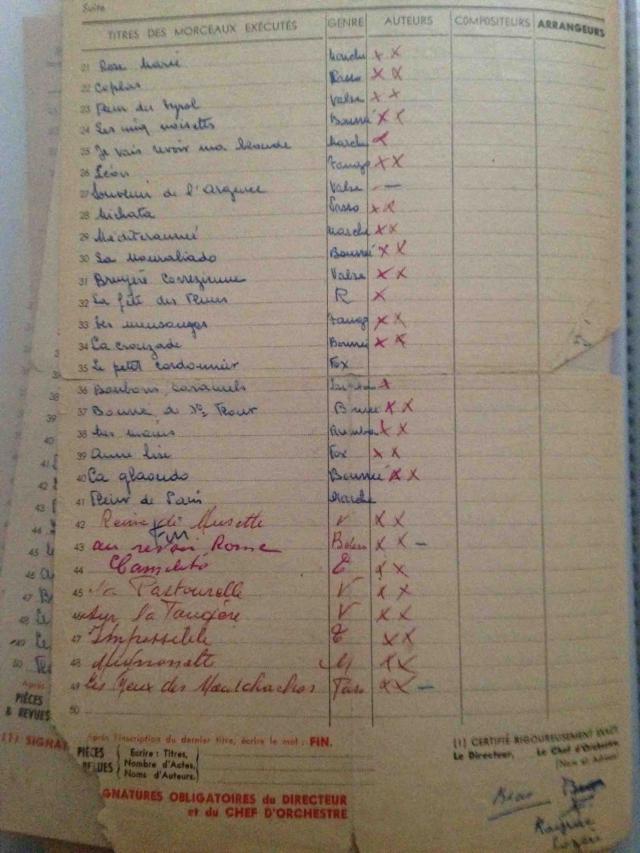 Suite
TITRES DES MORCEAUX EXÉCUTÉS GENRE AUTEURS COMPOSITEURS ARRANGEURS
21 Rose Marie Marche x x
22 Coplas Passo x x
23 Fleur du Tyrol Valse x x
24 Les cinq noisettes Bourrée x x
25 Je vais revoir ma blonde Marche x
26 Léon Tango x x
27 Souvenir de l'argence Valse – –
28 Michata Passo x x
29 Méditerannée Marche x x
30 La Bourrée x x
31 Bruyère Corrézienne Valse x x
32 La fête des fleurs R x
33 Les mensonges Tango x x
34 La crouzade Bourrée x x
35 Le petit cordonnier Fox
36 Bonbons, caramels x
37 Bourrée d x x
38 Tes mains Rumba x x
39 Anne lise Fox x x
40 La glaoudo Bourrée x x
41 Fleur de Paris Marche
42 Reine de Musette V x x
Fin
43 au revoir Rome Boléro x x –
44 Camelito T x x
45 La Pastourelle V x x
46 Sur la Fougère V x x
47 Impossible T x x
48 M x x
49 Les Yeux des Paso x x –
50
Après l'inscription du dernier titre, écrire le mot : FIN.
PIÈCES
Ecrire : Titres,
Nombre d'Actes,
Noms d'Auteurs.
GNATURES OBLIGATOIRES du DIRECTEUR
et du CHEF D'ORCHESTRE
(1) CERTIFIÉ RIGOUREUSEMENT EXACT
Le Directeur, Le Chef d'Orchestre
PIÈCES
& REVUES
(1) SIGNAT